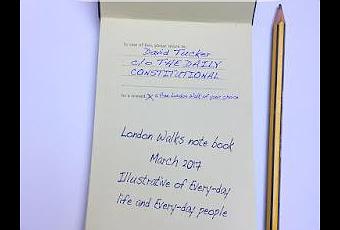 In case of loss, please return to:
David Tucker
c/o THE DAILY
CONSTITUTIONAL
As a reward: X a free London Walk of your choice
London Walks note book
March 2017
Illustrative of Every-day
life and Every-day people